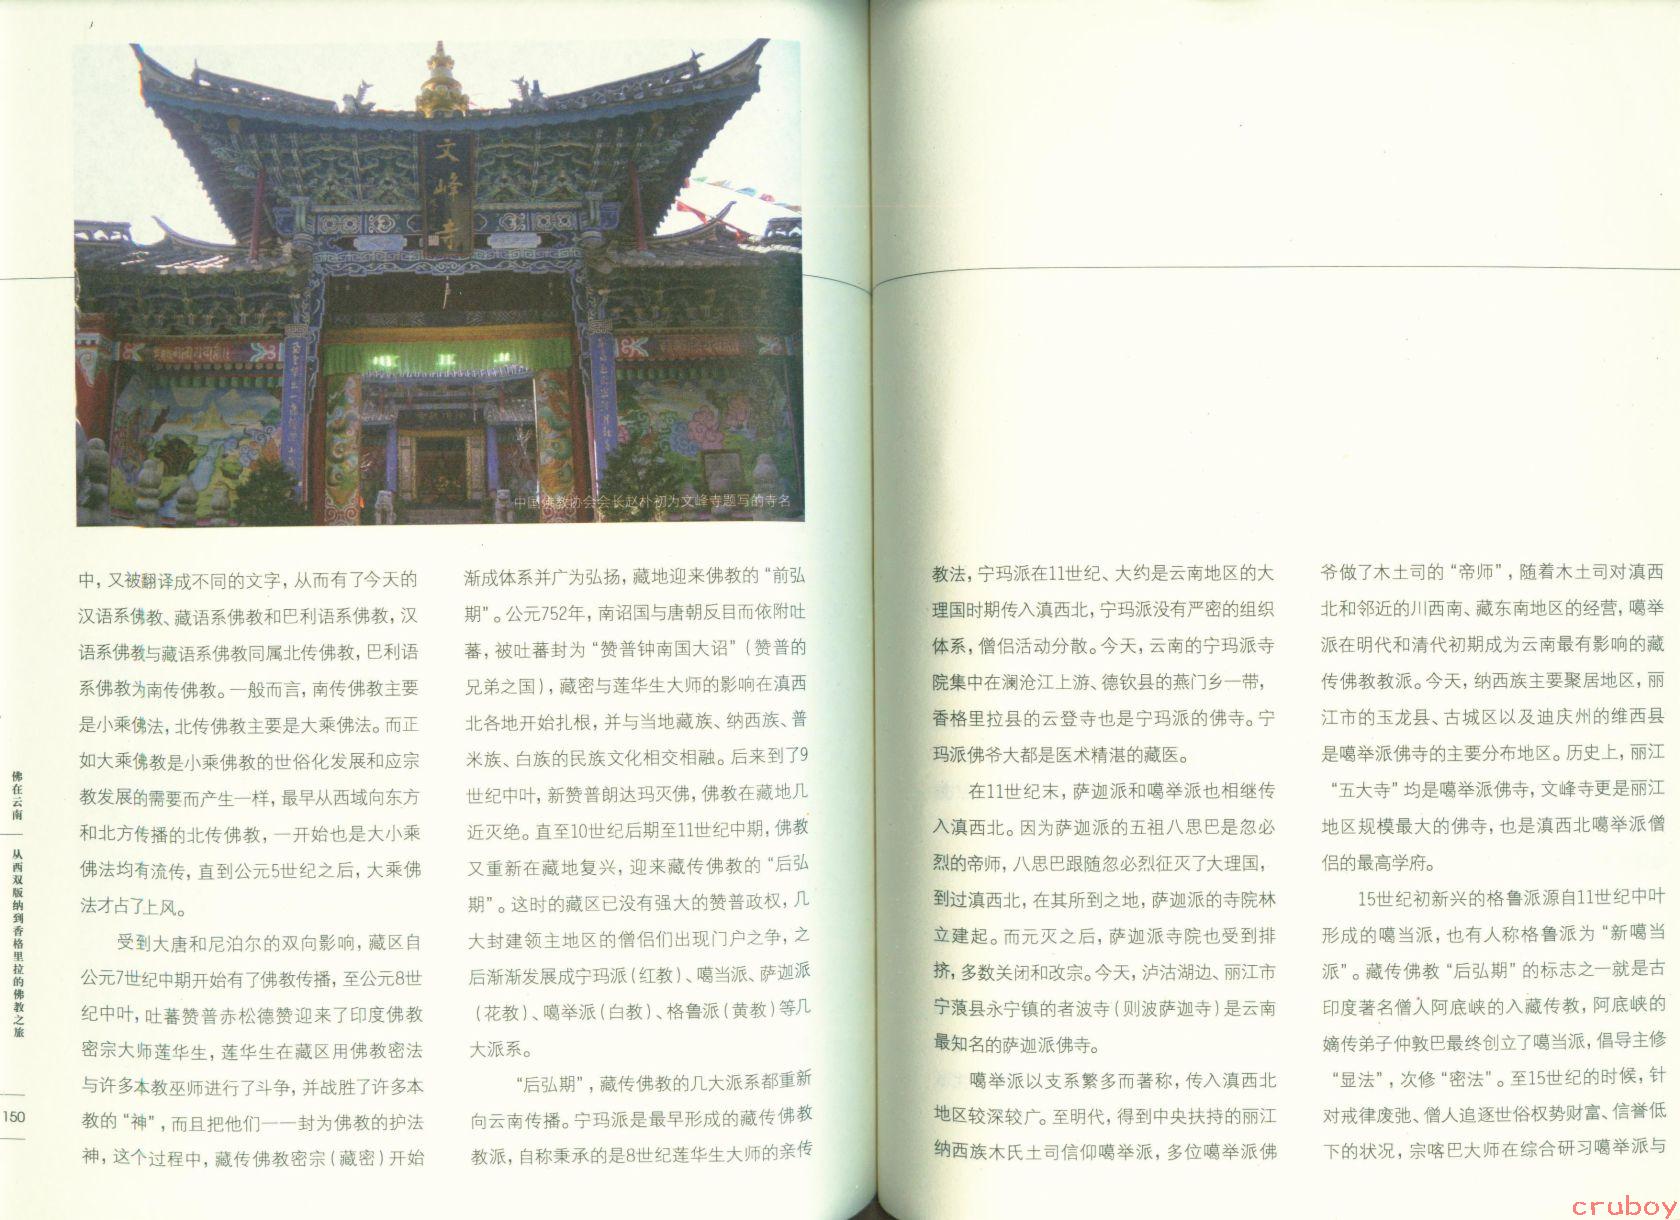 文峰寺
中国佛教协会会长赵朴初为文峰寺题写的寺名
中，又被翻译成不同的文字，从而有了今天的
汉语系佛教、藏语系佛教和巴利语系佛教，汉
语系佛教与藏语系佛教同属北传佛教，巴利语
系佛教为南传佛教。一般而言，南传佛教主要
是小乘佛法，北传佛教主要是大乘佛法。而正
如大乘佛教是小乘佛教的世俗化发展和应宗
教发展的需要而产生一样，最早从西域向东方
和北方传播的北传佛教，一开始也是大小乘
佛法均有流传，直到公元5世纪之后，大乘佛
法才占了上风。
受到大唐和尼泊尔的双向影响，藏区自
公元7世纪中期开始有了佛教传播，至公元8世
纪中叶，吐蕃赞普赤松德赞迎来了印度佛教
密宗大师莲华生，莲华生在藏区用佛教密法
与许多本教巫师进行了斗争，并战胜了许多本
教的“神”，而且把他们一一封为佛教的护法
神，这个过程中，藏传佛教密宗（藏密）开始
渐成体系并广为弘扬，藏地迎来佛教的“前弘
期”。公元752年，南诏国与唐朝反目而依附吐
蕃，被吐蕃封为“赞普钟南国大诏”（赞普的
兄弟之国），藏密与莲华生大师的影响在滇西
北各地开始扎根，并与当地藏族、纳西族、普
米族、白族的民族文化相交相融。后来到了9
世纪中叶，新赞普朗达玛灭佛，佛教在藏地几
近灭绝。直至10世纪后期至11世纪中期，佛教
又重新在藏地复兴，迎来藏传佛教的“后弘
期”。这时的藏区已没有强大的赞普政权，几
大封建领主地区的僧侣们出现门户之争，之
后渐渐发展成宁玛派（红教）、噶当派、萨迦派
（花教）、噶举派（白教）、格鲁派（黄教）等几
大派系。
“后弘期”，藏传佛教的几大派系都重新
向云南传播。宁玛派是最早形成的藏传佛教
教派，自称秉承的是8世纪莲华生大师的亲传
佛在云南
从西双版纳到香格里拉的佛教之旅
150
教法，宁玛派在11世纪、大约是云南地区的大
理国时期传入滇西北，宁玛派没有严密的组织
体系，僧侣活动分散。今天，云南的宁玛派寺
院集中在澜沧江上游、德钦县的燕门乡一带，
香格里拉县的云登寺也是宁玛派的佛寺。宁
玛派佛爷大都是医术精湛的藏医。
在11世纪末，萨迦派和噶举派也相继传
入滇西北。因为萨迦派的五祖八思巴是忽必
烈的帝师，八思巴跟随忽必烈征灭了大理国，
到过滇西北，在其所到之地，萨迦派的寺院林
立建起。而元灭之后，萨迦派寺院也受到排
挤，多数关闭和改宗。今天，泸沽湖边、丽江市
宁蒗县永宁镇的者波寺（则波萨迦寺）是云南
最知名的萨迦派佛寺。
噶举派以支系繁多而著称，传入滇西北
地区较深较广。至明代，得到中央扶持的丽江
纳西族木氏土司信仰噶举派，多位噶举派佛
爷做了木土司的“帝师”，随着木土司对滇西
北和邻近的川西南、藏东南地区的经营，噶举
派在明代和清代初期成为云南最有影响的藏
传佛教教派。今天，纳西族主要聚居地区，丽
江市的玉龙县、古城区以及迪庆州的维西县
是噶举派佛寺的主要分布地区。历史上，丽江
“五大寺”均是噶举派佛寺，文峰寺更是丽江
地区规模最大的佛寺，也是滇西北噶举派僧
侣的最高学府。
15世纪初新兴的格鲁派源自11世纪中叶
形成的噶当派，也有人称格鲁派为“新噶当
派”。藏传佛教“后弘期”的标志之一就是古
印度著名僧人阿底峡的入藏传教，阿底峡的
嫡传弟子仲敦巴最终创立了噶当派，倡导主修
“显法”，次修“密法”。至15世纪的时候，针
对戒律废弛、僧人追逐世俗权势财富、信誉低
下的状况，宗喀巴大师在综合研习噶举派与
cruboy